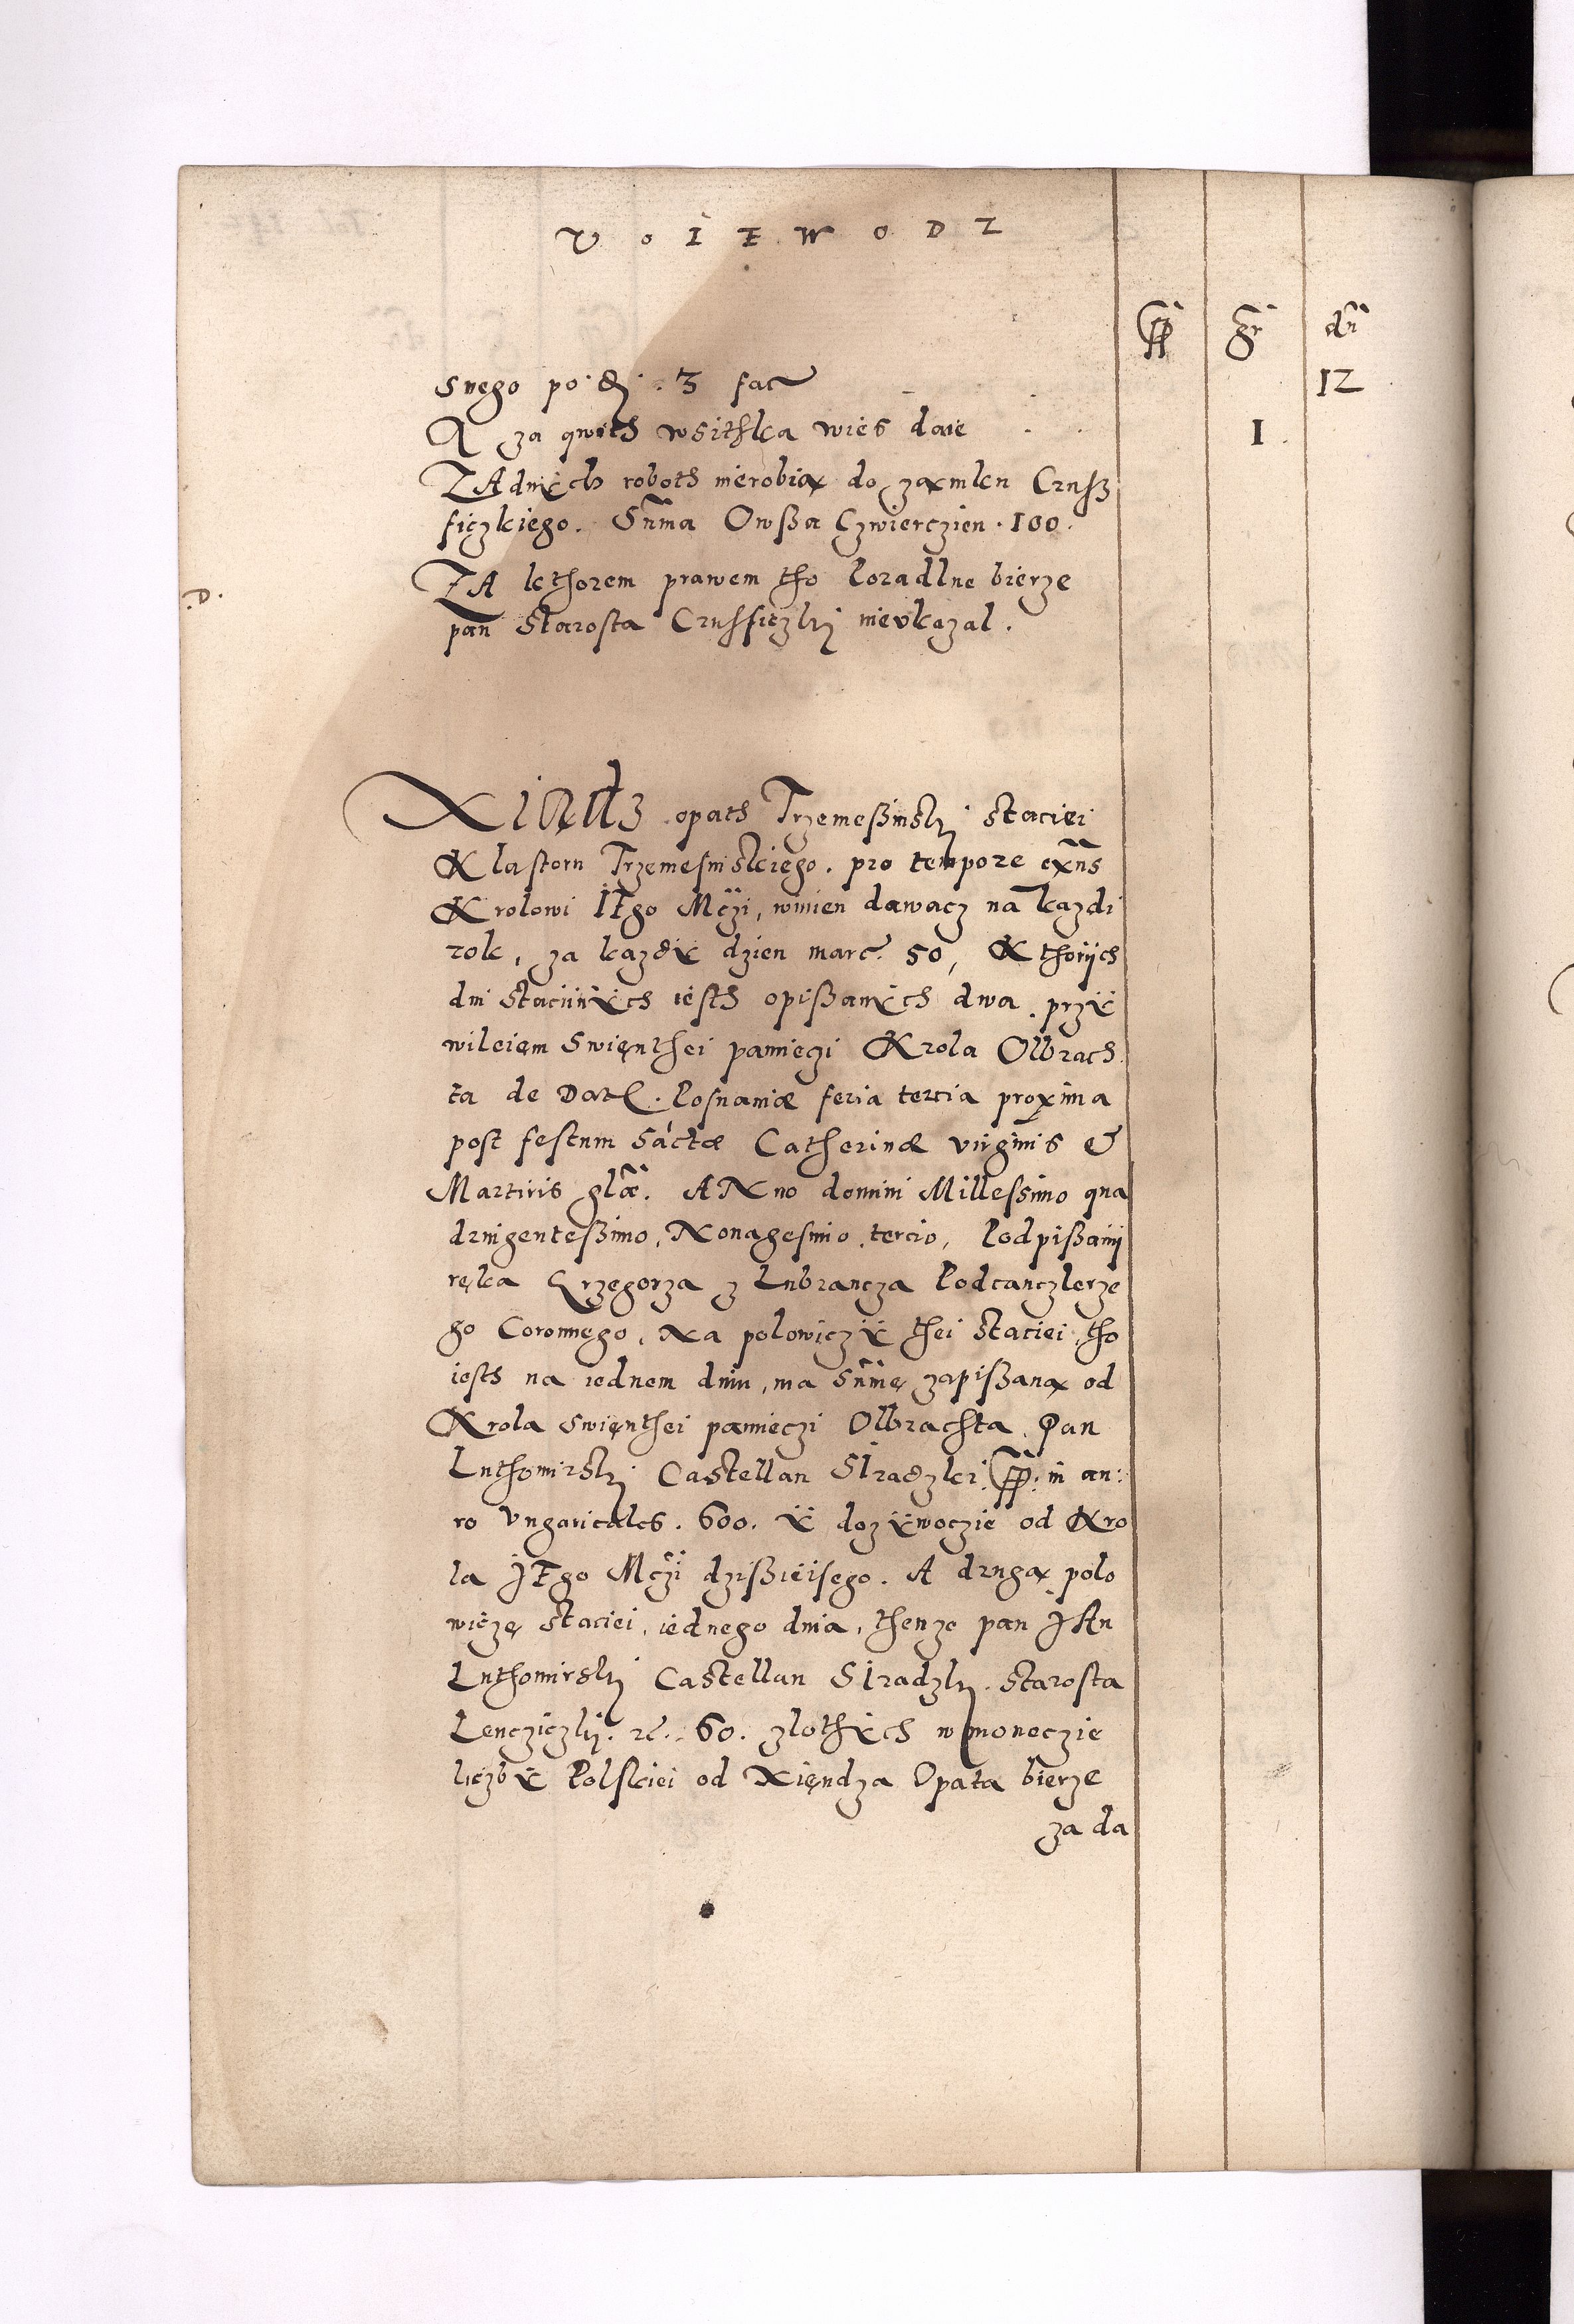 VOIEWODZ
fl gr dń
snego po d. 3 fac 12
A za qwith wsithka wies daie . . 1 .
ZAdnÿch roboth nierobią do zamku Crusß
ficzkiego. Sum̃a Owßa Czwierczien . 100.
.D. ZA kthorem prawem tho Poradlne bierze
pan Starosta Crusficzkj nieukazal.
XIĄdz opath Trzemeßinskj staciei
Klastoru Trzemesinskiego. pro tempore ex̃ns
Krolowi IEgo Mc̃zi, winien dawacz na kazdi
rok, za kazdÿ dzien marc. 50, Kthorÿch
dni staciinÿch iesth opißanÿch dwa. przÿ
wileiem swięnthei pamięczi Krola Olbrach
ta de Dat. Posnaniæ feria tercia proxima
post festum Sáctæ Catherinæ virginis &
Martiris gl̃æ. ANno domini Millessimo qua
dringenteßimo, Nonagesimo tercio, Podpißanij
ręka Grzegorza z Lubrancza Podcanczlerze
go Coronnego, Na polowiczÿ thei staciei, tho
iesth na iednem dniu, ma Sum̃ę zapißaną od
Krola swięnthei pamięczi Olbrachta. Pan
Luthomirskj Castellan SIradzki. fl: in au:
ro Vngaricales. 600. ÿ dozÿwoczie od Kro
la JEgo Mc̃zi dzißieisego. A drugą polo
wiczę staciei, iednego dnia, thenze pan JAn
Luthomirskj Castellan SIradzkj. Starosta
Lencziczkij. rc. 60. zlothÿch w moneczie
liczbÿ Polskiei od Xięndza Opata bierze
za da